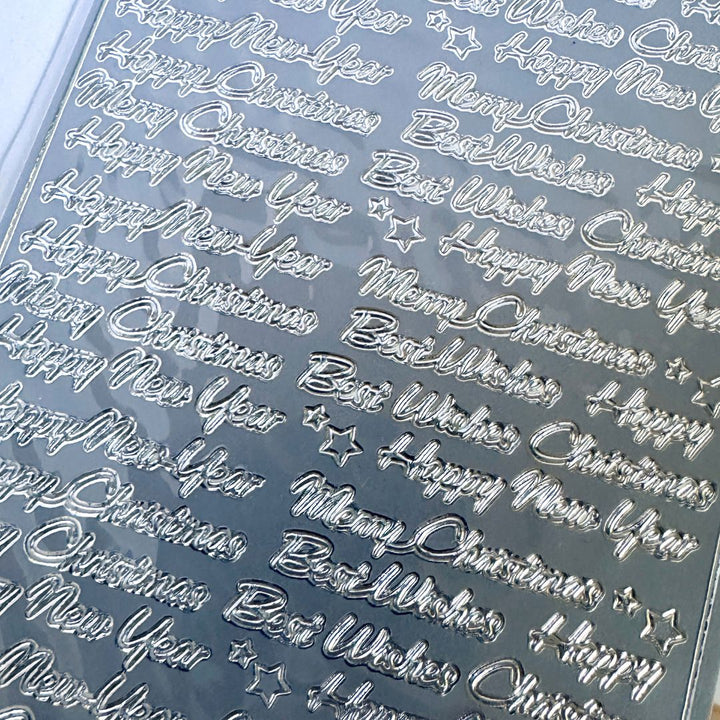 Happy New Year
Best Wishes
Happy New Year
Christmas
Happy Christmas
Happy New
Merry Christmas
Merry Christmas
Happy New Year
Best Wishes
Happy New Year
Best Wishes
Happy Christmas
Christmas
Merry Christmas
Happy New Year
Happy New Year
Merry Christmas
Happy New Year
Best Wishes
Happy Christmas
Best Wishes
Happy
Christmas
Christmas
New Year
Happy New Year
New Year
Merry Christmas
Best Wishes
Best Wishes
Happy
Christmas